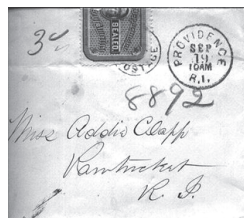 3c
SEALED
POSTAGE
PROVIDENCE
SEP
19
10AM
R.I.
8892
Miss Addie Clapp
Pawtucket
R. I.